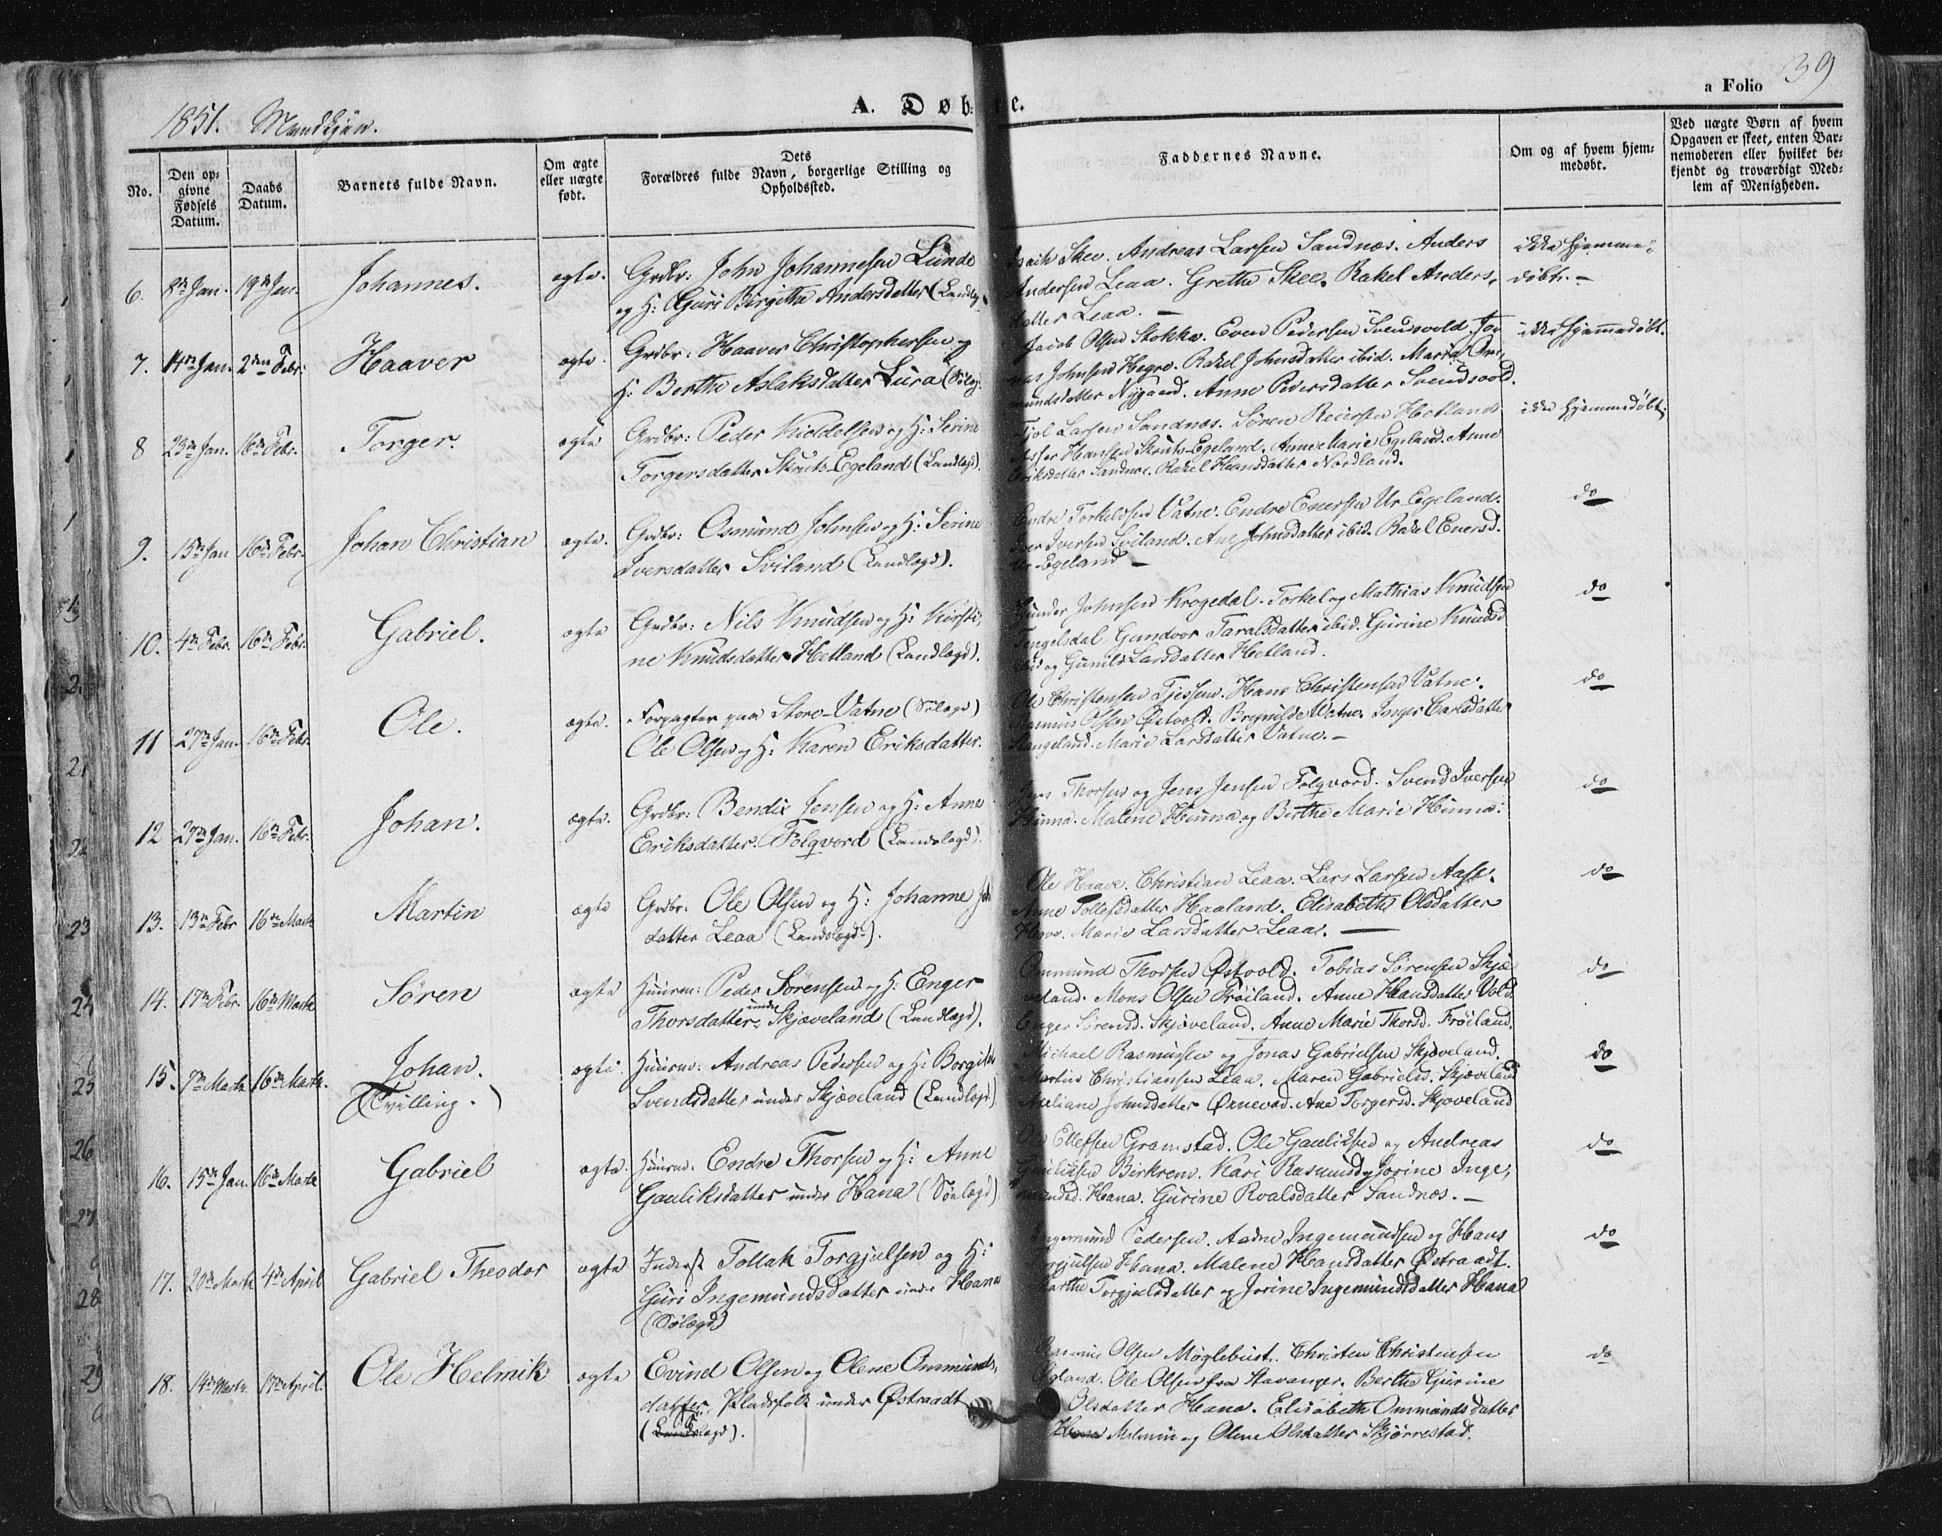 1851. Mandkjøn.
A. Døb= e.
a Folio 39
No.
Den op=
givne
Fødsels
Datum.
Daabs
Datum.
Barnets fulde Navn.
Om ægte
eller uægte
født.
Dets
Forældres fulde Navn, borgerlige Stilling og
Opholdssted.
Faddernes Navne.
Om og af hvem hjem=
medøbt.
Ved uægte Børn af hvem
Opgaven er skeet, enten Bar=
nemoderen eller hvilket be=
kjendt og troværdigt Med=
lem af Menigheden.
6. 8de Jan. 19de Jan. Johannes. ægte. Grdbr: John Johannesen Lunde
og H: Guri Birgithe Andersdatter (Landlg.
Skee. Andreas Larsen Sandnæs. Anders
Andersen Leaa. Grethe Skee. Rakel Anders=
datter Leaa. —
ikke hjemme=
døbt. —
7. 14de Jan. 2den Febr: Haaver ægte. Grdbr: Haaver Christophersen og
H: Berthe Aslaksdatter Lura (Sølæg.
Jacob Olsen Stokka. Even Pedersen Svendsvold. Jo=
nas Johnsen Hegre. Rakel Johnsdatter ibid. Maria Om=
mundsdatter Nygaard. Anne Peersdatter Svendsvold.
ikke hjemmedøbt.
8 23de Jan. 16de Febr. Torger. ægte Grdbr: Peder Kiddelsen og H: Serine
Torgersdatter Skruts-Egeland (Landlægd).
Larsen Sandnæs. Søren Reiersen Hetland
Asser Hansen Skruts-Egeland. Anne Marie Egeland. Anne
Eriksdatter Sandnæs. Rakel Hansdatter Nordland.
ikke hjemmedøbt.
9. 15de Jan 16de Febr. Johan Christian ægte. Grdbr: Osmund Johnsen og H: Serine
Iversdatter Sviland (Landlægd).
Endre Torkeldsen Vatne. Endre Enersen Ur-Egeland.
Iver Iversen Sviland. Ane Johnsdatter ibid. Rakel Enersd.
Ur-Egeland —
do
10. 4de Febr. 16de Febr. Gabriel. ægte Grdbr: Nils Knudsen og H: Kirsti=
ne Knudsdatter Hetland (Landlægd).
Gunder Johnsen Krogedal. Torkel og Mathias Knudsen
Tengelsdal Gundvor Taralsdatter ibid. Gurine Knudsd
ibid og Gunild Larsdatter Hetland.
do
11 27de Jan. 16de Febr. Ole. ægte. Forpagter paa Store-Vatne (Sølægd)
Ole Olsen og H: Karen Eriksdatter.
Ole Christensen Tjessem. Hans Christensen Vatne.
Rasmus Olsen Østvold. Brynilde Vatne. Inger Carlsdatter
Hangeland. Marie Larsdatter Vatne. —
do
12 27de Jan. 16de Febr. Johan. ægte. Grdbr: Bendix Jensen og H: Anne
Eriksdatter Folqvord (Landslægd).
Thorsen og Jens Jensen Folqvord. Svend Iversen
Hinna. Malene Hinna og Berthe Marie Hinna.
do
13. 13de Febr 16de Marts Martin ægte Grdbr. Ole Olsen og H: Johanne
datter Leaa (Landslægd.).
Ole Haave. Christian Leaa. Lars Larsen Aase.
Anne Tollefsdatter Haaland. Elisabeth Olsdatter
Marie Larsdatter Leaa. —
do
14. 17de Febr. 16de Marts Søren ægte Huusm: Peder Sørensen og H: Enger
Thorsdatter under Skjæveland (Landlægd).
Ommund Thorsen Østvold. Tobias Sørensen Skjæ
veland. Mons Olsen Frøiland. Anne Hansdatter Vold
Enger Sørensd. Skjæveland. Anne Marie Thorsd. Frøiland.
do
15. 7de Marts 16de Marts. Johan.
(Tvilling.) ægte. Huusm: Andreas Pedersen og H: Borgilde
Svendsdatter under Skjæveland (Landlægd)
Michael Rasmussen og Jonas Gabrielsen Skjæveland.
Martin Christiansen Leaa. Maren Gabrielsd. Skjæveland
Johnsdatter Ørnevad. Ane Torgersd. Skjæveland
do
16. 15de Jan. 16de Marts Gabriel ægte. Huusm: Endre Thorsen og H: Anne
Gauliksdatter under Hana (Sølægd)
Ellefsen Gramstad. Ole Gauliksen og Andreas
Gauliksen Birkrem. Kari Rasmusd. og Jorine Inge=
mundsd. Hana. Gurine Roalsdatter Sandnæs. —
do
17. 20de Marts 4de April Gabriel Theodor ægte Inderst Tollak Torgjulsen og H:
Guri Ingemundsdatter under Hana
(Sølægd)
Ingemund Pedersen. Aadne Ingemundsen og Hans
Torgjulsen Hana. Malene Hansdatter Østraadt.
Marthe Torgjulsdatter og Jorine Ingemundsdatter Hana
do
18. 14de Marts. 17de April. Ole Helmik ægte Evind Olsen og Olene Ommunds=
datter, Pladsfolk under Østraadt
(Sølægd).
Rasmus Olsen Møglebust. Christen Christensen
Ole Olsen fra Stavanger. Berthe Gurine
Olsdatter Hana. Elisabeth Ommundsdatter
Malmin og Olene Olsdatter Skjørrestad.
do
23
24
25
26
27
28
29